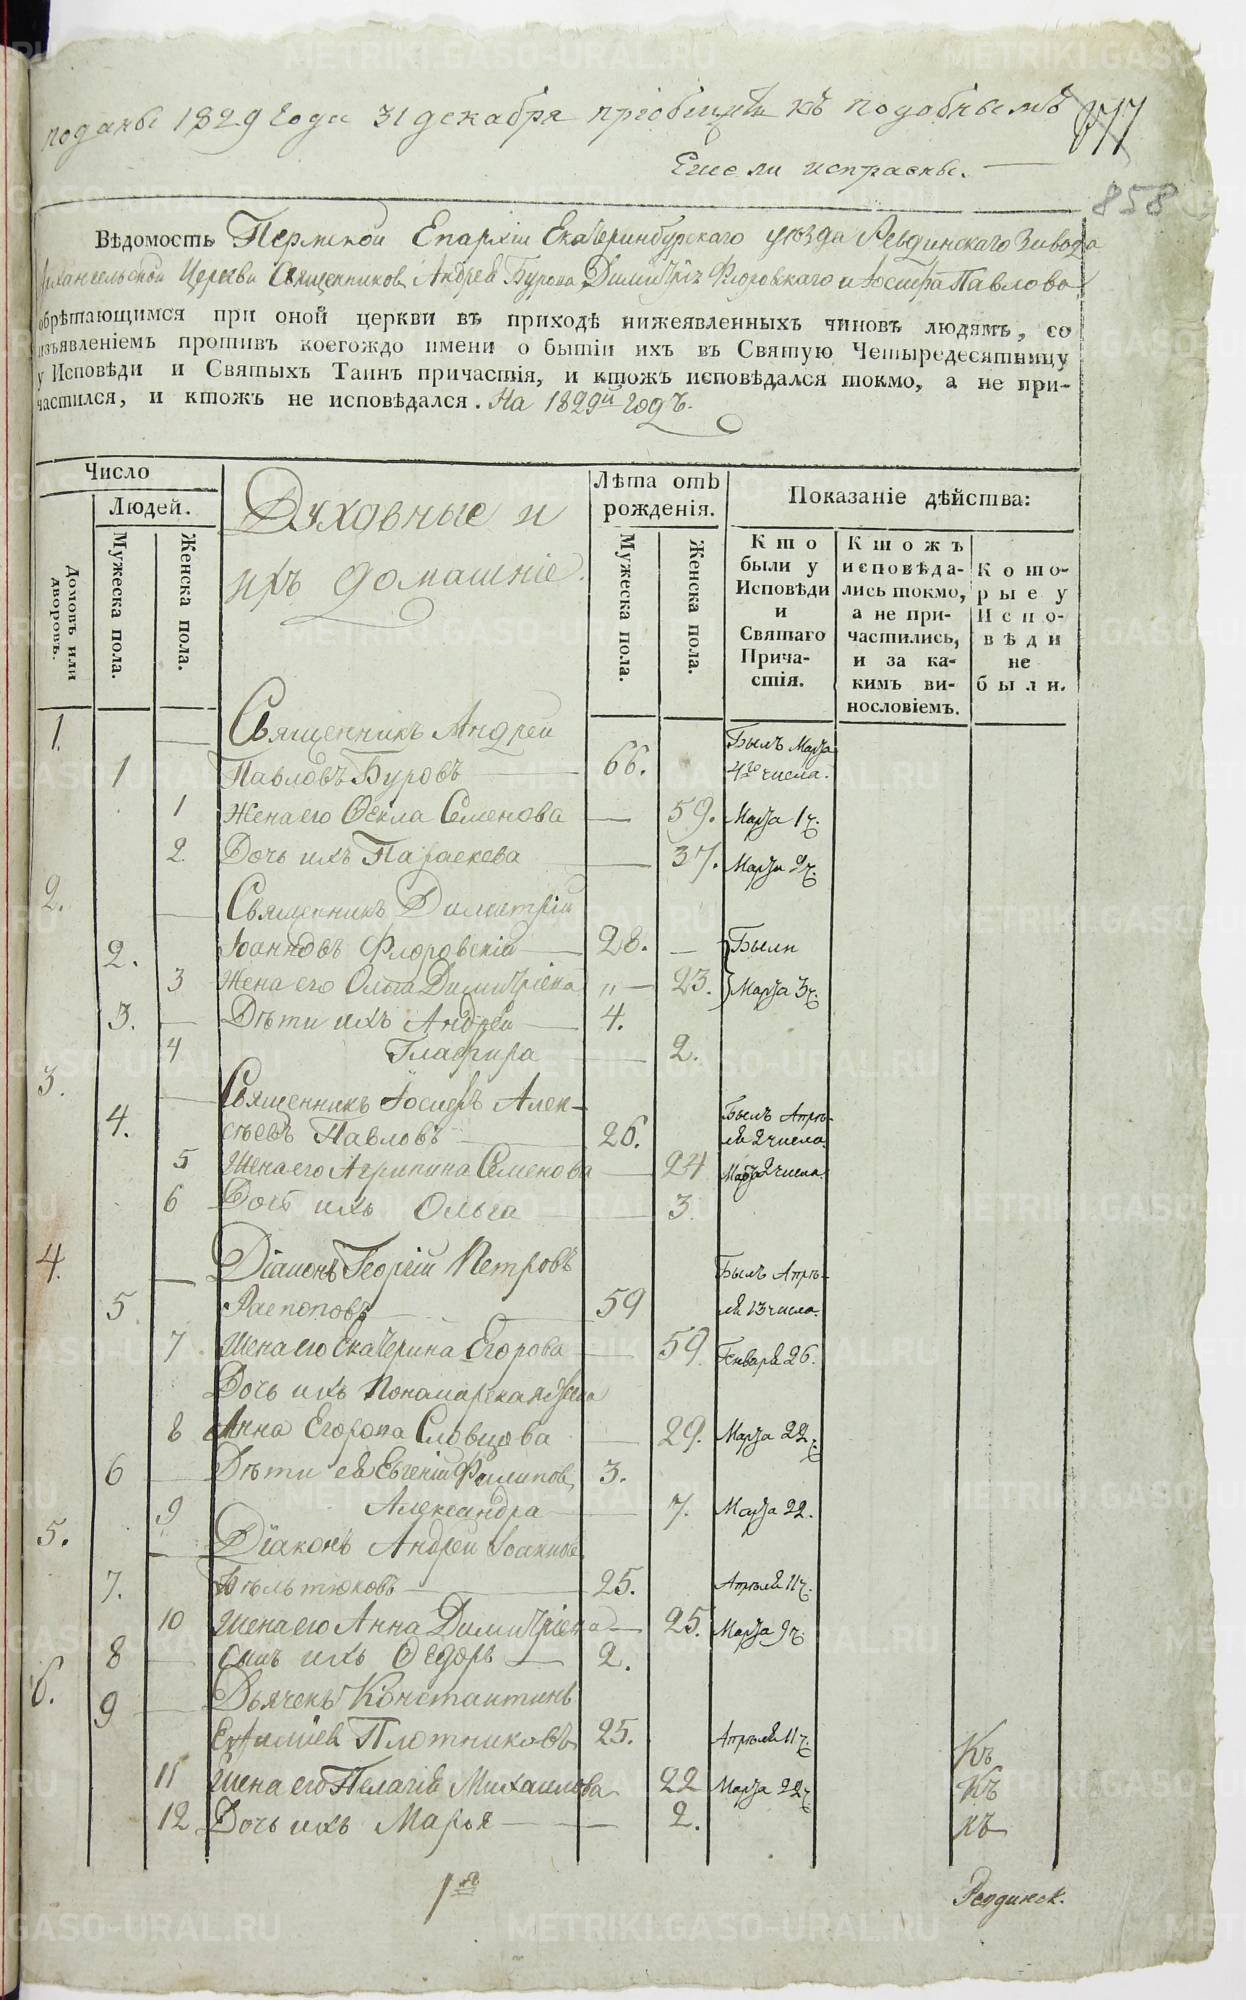 поданы 1829 Года 31 декабря приобщить къ подобнымъ
Ешели исправны.
858
Вѣдомость Пермской Епархіи Екатеринбурскаго уѣзда Ревдинскаго Завода
Архангельской Церкви Священниковъ Андрея Бурова, Димитрія Флоровскаго и Іосифа Павлова
обрѣтающимся при оной церкви въ приходѣ нижеявленныхъ чиновъ людямъ, со
изъявленіемъ противъ коегождо имени о бытіи ихъ въ Святую Четыредесятницу
у Исповѣди и Святыхъ Таинъ причастія, и ктожъ исповѣдался токмо, а не при-
частился, и ктожъ не исповѣдался. На 1829й годъ.
Число
Людей.
Домовъ или дворовъ.
Мужеска пола.
Женска пола.
Духовные и
ихъ домашніе.
Лѣта отъ
рожденія.
Мужеска пола.
Женска пола.
Показаніе дѣйства:
Кто
были у
Исповѣди
и
Святаго
Прича-
стія.
Ктожъ
исповѣда-
лись токмо,
а не при-
частились,
и за ка-
кимъ ви-
нословіемъ.
Кото-
рые у
Испо-
вѣди
не
были.
1. Священникъ Андрей Былъ Марта
1 Павловъ Буровъ 66. 4го числа.
1 Жена его Өекла Семенова 59. Марта 1 ч.
2 Дочь ихъ Параскева 37. Марта 2 ч.
2. Священникъ Димитрій
2. Іоанновъ Флоровскій 28. Были
3 Жена его Ольга Димитріева 23. Марта 3 ч.
3. Дѣти ихъ Андрей 4.
4 Глафира 2.
3. Священникъ Іосифъ Алек- Былъ Апрѣ-
4. сѣевъ Павловъ 26. ля 2 числа.
5 Жена его Агрипина Семенова 24 Марта 2 числа.
6 Дочь ихъ Ольга 3.
4. Діаконъ Георгій Петровъ Былъ Апрѣ-
5 Распоповъ 59 ля 13 числа.
7 Жена его Екатерина Егорова 59. Генваря 26.
Дочь ихъ Пономарская жена
8 Анна Егорова Словцова 29. Марта 22 ч.
6 Дѣти ея Евгеній Филиповъ 3.
9 Александра 7. Марта 22.
5. Діаконъ Андрей Іоанновъ
7. Бѣльтюковъ 25. Апрѣля 11 ч.
10 Жена его Анна Димитріева 25. Марта 9 ч.
8 Сынъ ихъ Өедоръ 2.
6. 9 Дьячекъ Константинъ
Плотниковъ 25. Апрѣля 11 ч. Къ
11 Жена его Пелагія Михаилова 22 Марта 22 ч. Къ
12 Дочь ихъ Марья 2. Къ
1я
Ревдинск.
METRIKI.GASO-URAL.RU